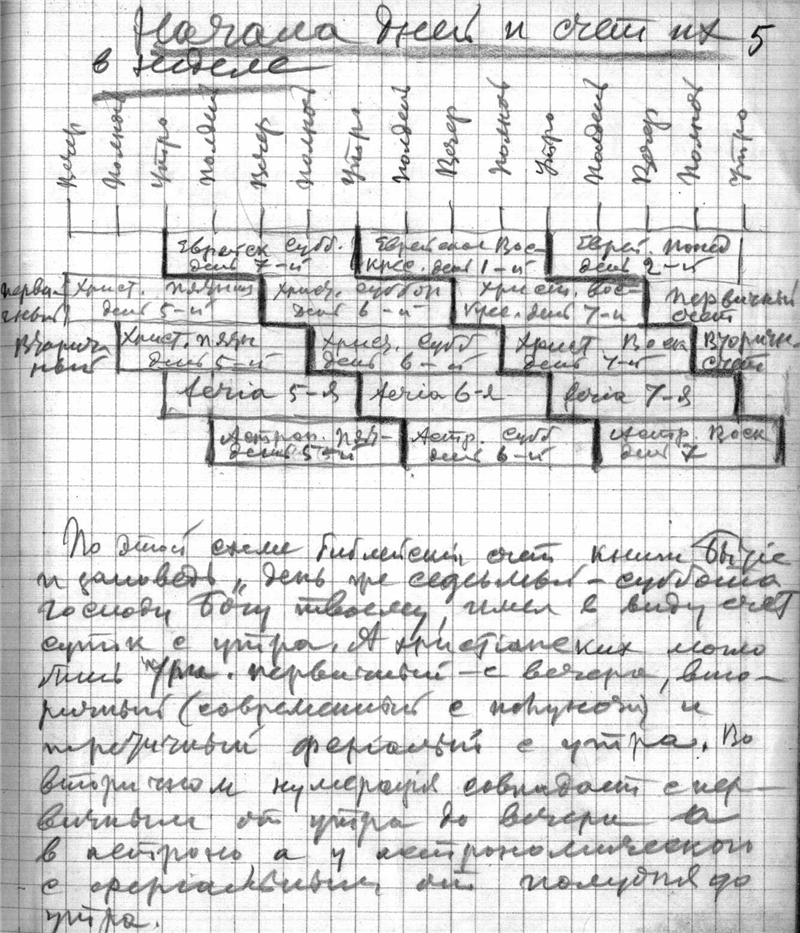 Начала дней и счет их 5
в неделе
Вечер Полноч Утро Полдень Вечер Полноч Утро Полдень Вечер Полноч Утро Полдень Вечер Полноч Утро
Еврейск Субб. день 7-й Еврейское Вос-крес. день 1-й Еврей. понед день 2-й
первичный Христ. пятниц день 5-й Христ. суббот день 6-й Христ. вос-крес. день 7-й первичный счет
Вторичный Христ. пятн день 5-й Христ. субб день 6-й Христ Воск день 7-й Вторичн. счет
feria 5-я feria 6-я feria 7-я
Астрон. пят- день 5-й Астр. субб день 6-й Астр. Воск день 7
По этой схеме библейский счет книги Бытіе
и заповедь „день же седьмый – суббота
господу Богу твоему, имел в виду счет
суток с утра. А христіанских могло
быть три. первичный – с вечера, вто-
ричный (современный с полуночи) и
ферiальный с утра. Во
вторичном нумерація совпадает с пер-
вичным от утра до вечера а
в астроно а у астрономической
с феріальным от полудня до
утра.